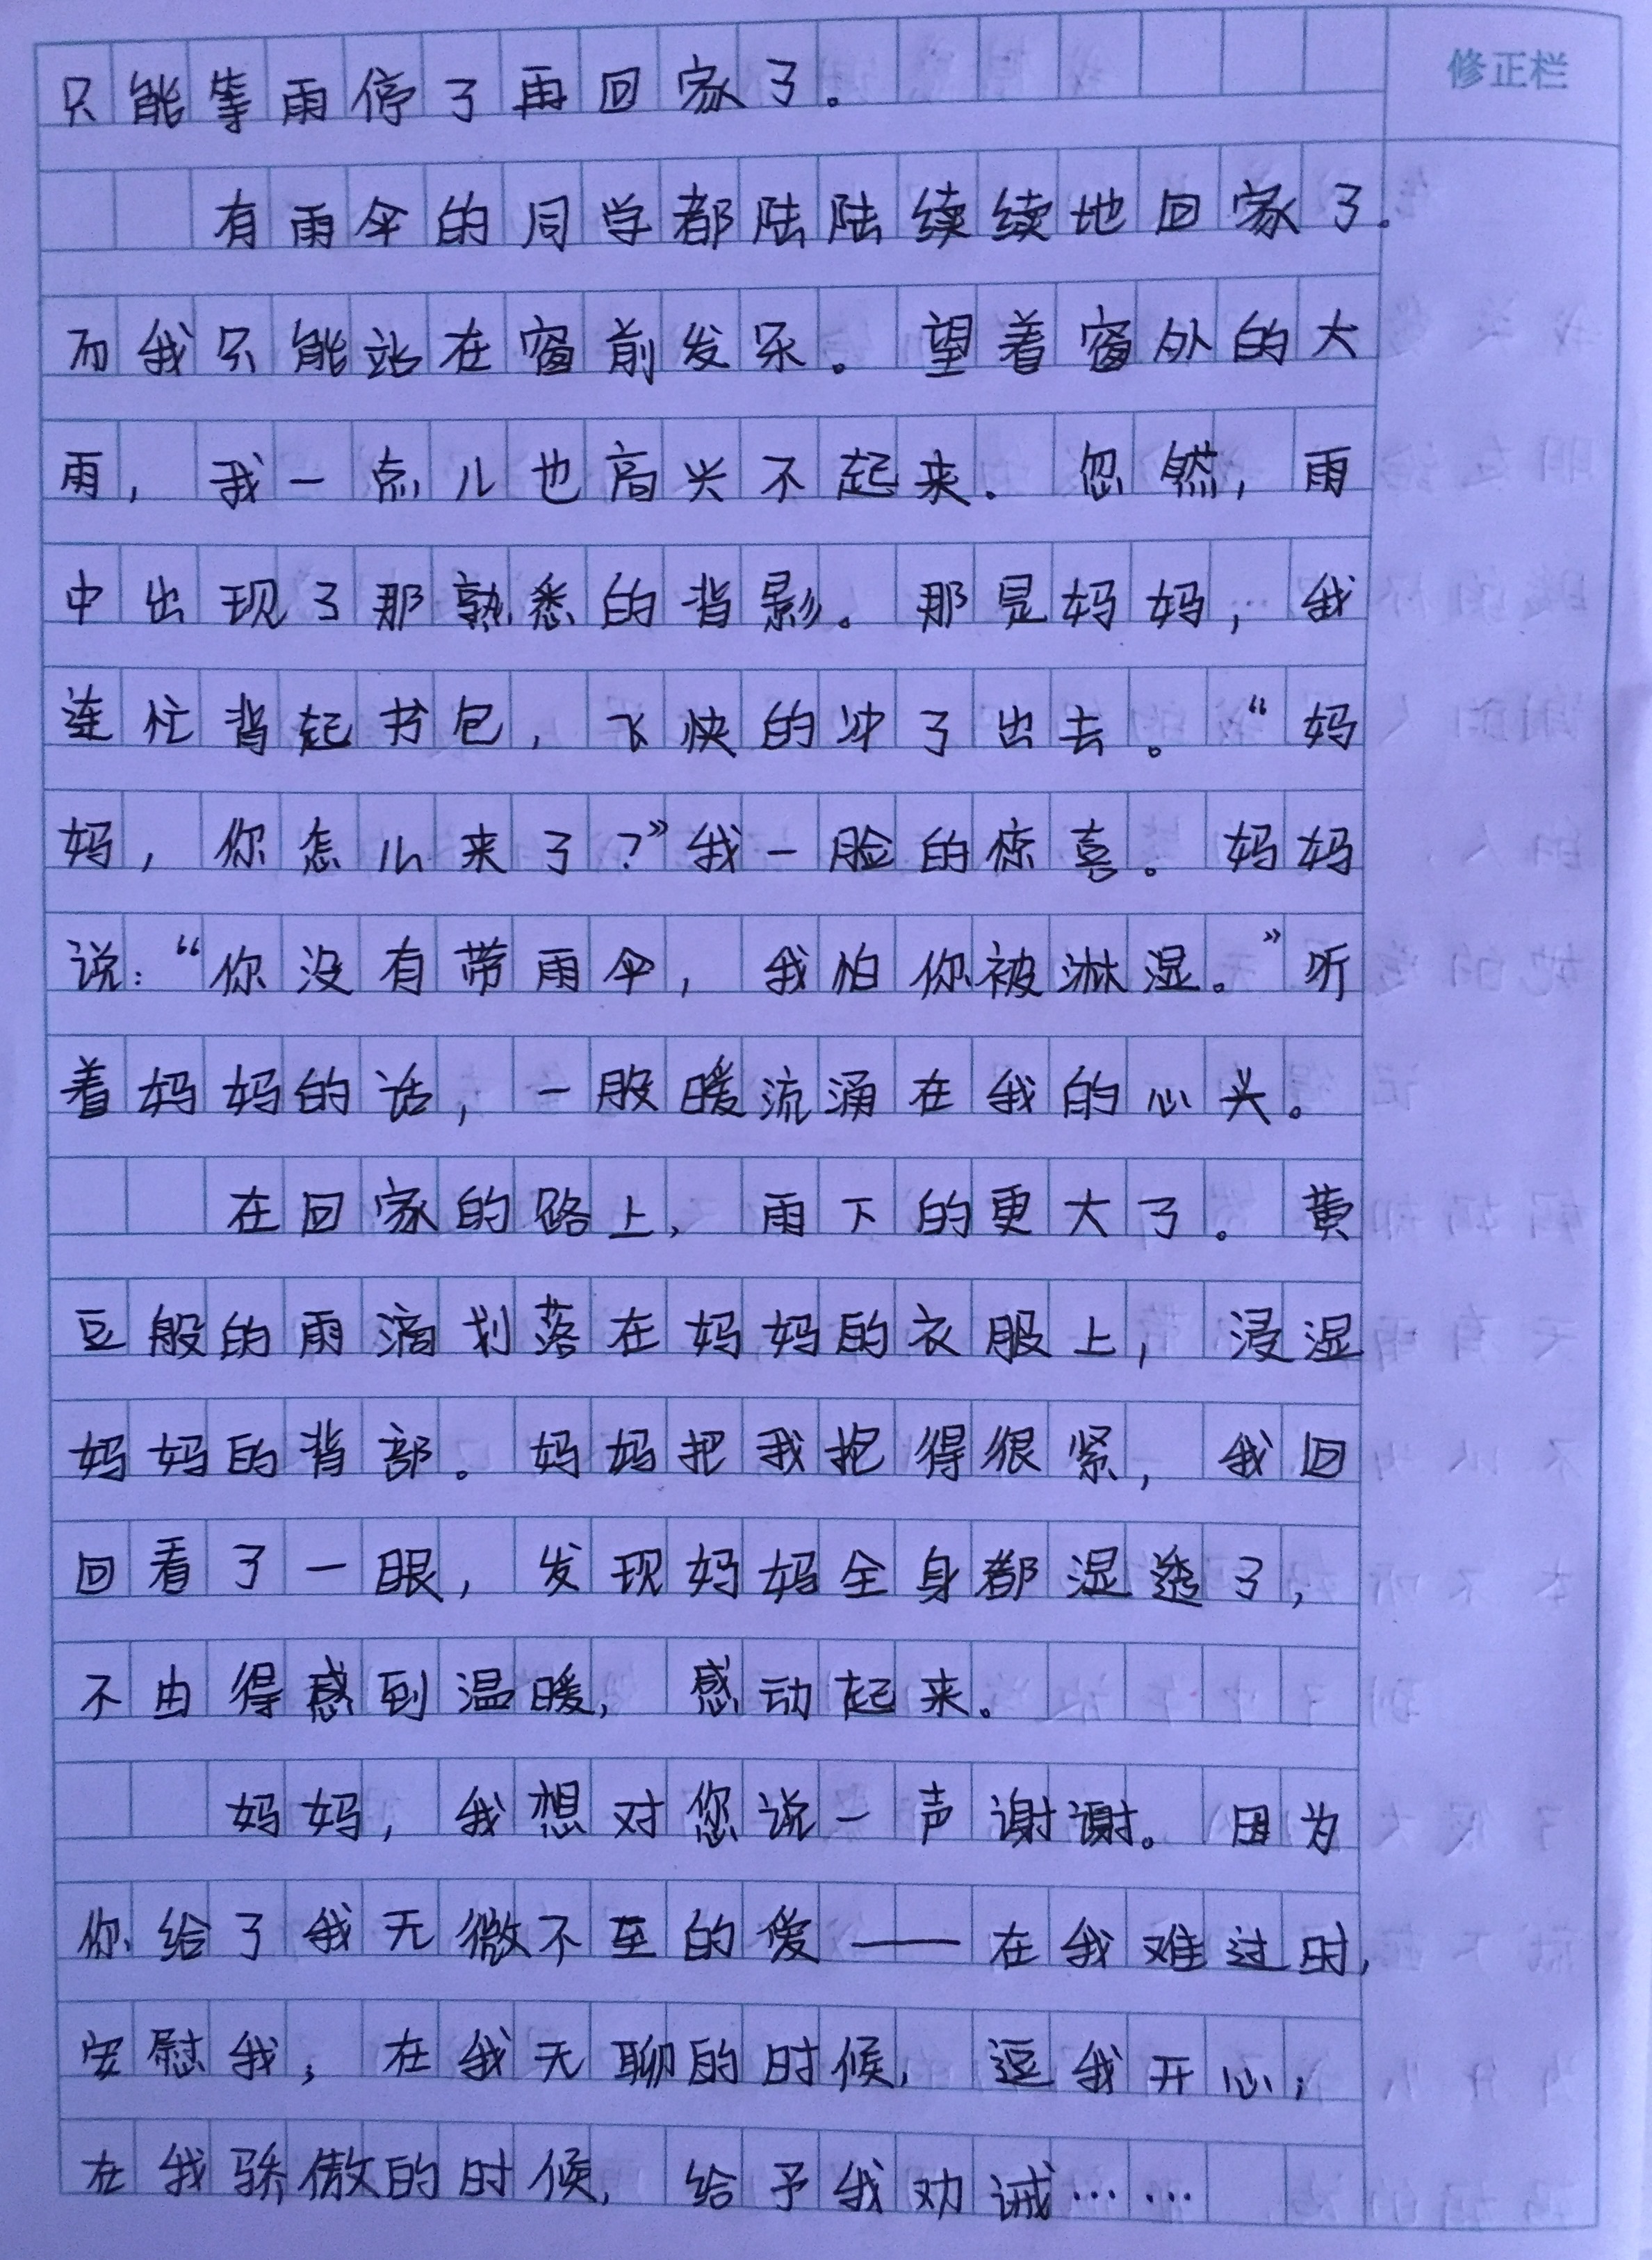 修正栏
只能等雨停了再回家了。
有雨伞的同学都陆陆续续地回家了。
而我只能站在窗前发呆。望着窗外的大
雨，我一点儿也高兴不起来。忽然，雨
中出现了那熟悉的背影。那是妈妈，我
连忙背起书包，飞快的冲了出去。“妈
妈，你怎么来了？”我一脸的惊喜。妈妈
说：“你没有带雨伞，我怕你被淋湿。”听
着妈妈的话，一股暖流涌在我的心头。
在回家的路上，雨下的更大了。黄
豆般的雨滴划落在妈妈的衣服上，浸湿
妈妈的背部。妈妈把我抱得很紧，我回
回看了一眼，发现妈妈全身都湿透了，
不由得感到温暖，感动起来。
妈妈，我想对您说一声谢谢。因为
你给了我无微不至的爱——在我难过时，
安慰我；在我无聊的时候，逗我开心；
在我骄傲的时候，给予我劝诫……